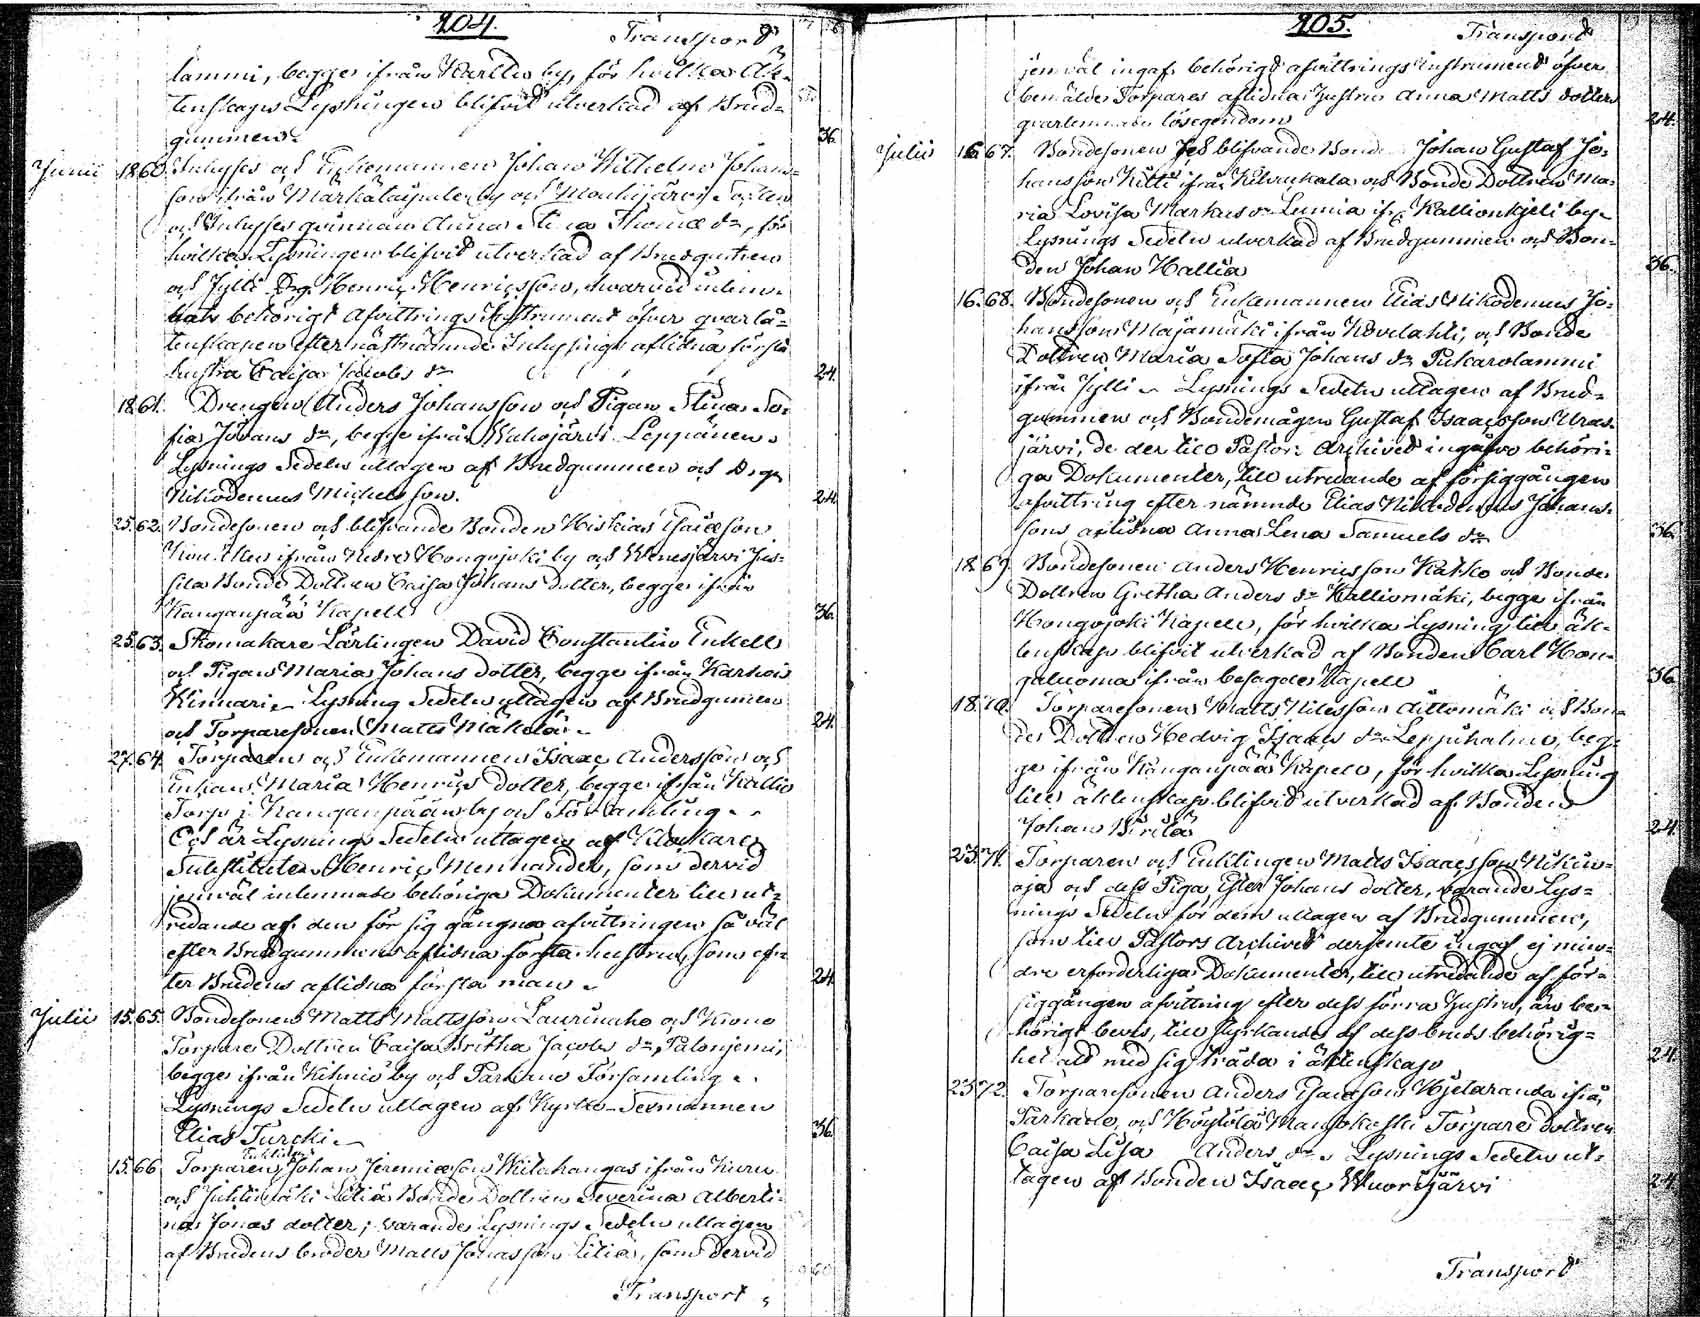 104.
Transport
lammi, begge ifrån Karttu by, för hvilka Äk-
tenskaps Lysningen blifvit utverkad af Brud-
gummen. 36.
Junii 18 60. Inhyses och Enkemannen Johan Wilhelm Johans-
son ifrån Märkälaipale by och Mouhijärvi Socken
och Inhyses qvinnan Anna Stina Thomæ dr, för
hvilka Lysningen blifvit utverkad af Brudgummen
och Jylli Drg. Henric Henricsson, hvarvid inlem-
nats behörigt Afvittrings Instrument öfver qvarlå-
tenskapen efter nästnämnde Inhysings aflidna första
hustru Caisa Jacobs dr 24.
18 61. Drengen Anders Johansson och Pigan Stina So-
fia Johans dr, begge ifrån Wahojärvi Leppänen.
Lysnings Sedeln uttagen af Brudgummen och Drg.
Nikodemus Michelsson. 24.
25. 62. Bondesonen och blifvande Bonden Hiskias Esaiæson
ifrån Nedre Hongojoki by och Wenesjärvi Jus-
sila Bonde Dottren Caisa Johans dotter, begge ifrån
Kanganpää Kapell 36.
25. 63. Skomakare Lärlingen David Constantin Enkell
och Pigan Maria Johans dotter, begge ifrån Karhois
Kinnari. Lysning Sedeln uttagen af Brudgumen
och Torparesonen Matts Mäkelä. 24.
27. 64. Torparen och Enkemannen Isaac Andersson och
Enkan Maria Henrics dotter, begge ifrån Kallio
Torp i Kanganpään by och Församling.
Och är Lysnings Sedeln uttagen af Klockare
Substituten Henric Menhander, som dervid
jemväl inlemnade behöriga Dokumenter till ut-
redande af den för sig gångna afvittringen så väl
efter Brudgummens aflidna första hustru, som ef-
ter Brudens aflidna första man. 24.
Julii 15. 65. Bondesonen Matts Mattsson Laurinaho och Krono
Torpare Dottren Caisa Britha Jacobs dr, Palonjemi,
begge ifrån Kihniö by och Parkano Församling.
Lysnings Sedeln uttagen af Kyrko-Sexmannen
Elias Turcki. 36.
Enklingen
15. 66. Torparen Johan Jeremiæson Witahangas ifrån Kuru
och Juhtimäki Litiä Bonde Dottren Severina Alberti-
na Jonas dotter; varande Lysnings Sedeln uttagen
af Brudens broder Matts Jonasson Litiä, som dervid
Transport
105.
Transport
jemväl ingaf behörigt afvittrings instrument öfver
bemälde Torpares aflidna hustru Anna Matts dotters
qvarlemnade lösegendom 24.
Julii 16. 67. Bondesonen och blifvande Bonden Johan Gustaf Jo-
hansson Kitti ifrån Kihukala och Bonde Dottren Ma-
ria Lovisa Markus dr Lumia ifr. Kallionkjeli by.
Lysnings Sedeln utverkad af Brudgummen och Bon-
den Johan Hallia 36.
16. 68. Bondesonen och Enkemannen Elias Nikodemus Jo-
hansson Majamäki ifrån Kovelahti, och Bonde
Dottren Maria Sofia Johans dr Pukarolammi
ifrån Jylli. Lysnings Sedeln uttagen af Brud-
gummen och Bondemågen Gustaf Isaacsson Uras-
järvi, de der till Pastors Archivet ingåfvo behöri-
ga Dokumenter, till utredande af försiggången
afvittring efter nämnde Elias Nikodemus Johans-
sons aflidna Anna Lena Samuels dr 36.
18. 69. Bondesonen Anders Henricsson Kakko och Bonde
Dottren Gretha Anders dr Kalliomäki, begge ifrån
Hongojoki Kapell, för hvilka Lysning till äk-
tenskap blifvit utverkad af Bonden Carl Hon-
galuoma ifrån besagde Kapell 36.
18. 70. Torparesonen Matts Nilsson Aittomäki och Bon-
de Dottren Hedvig Isaacs dr Leppihalme, beg-
ge ifrån Kanganpää Kapell, för hvilka Lysning
till äktenskap blifvit utverkad af Bonden
Johan Kirilä 24.
23. 71. Torparen och Enklingen Matts Isaacsson Nikun-
oja och dess Piga Ester Johans dotter, varande Lys-
nings Sedeln för dem uttagen af Brudgummen,
som till Pastors Archivet dersemte ingaf ej min-
dre erforderliga Dokumenter, till utredande af för-
siggången afvittring efter dess förra hustru, än be-
hörigt bevis, till styrkande af dess bruds behörig-
het att med sig träda i äktenskap 24.
23. 72. Torparesonen Anders Esaiæson Hjetaranda ifrån
Parkano, och Höytölä Mansokoski Torpare dottren
Caisa Lisa Anders dr. Lysnings Sedeln ut-
tagen af Bonden Isaac Wuorijärvi 24.
Transport